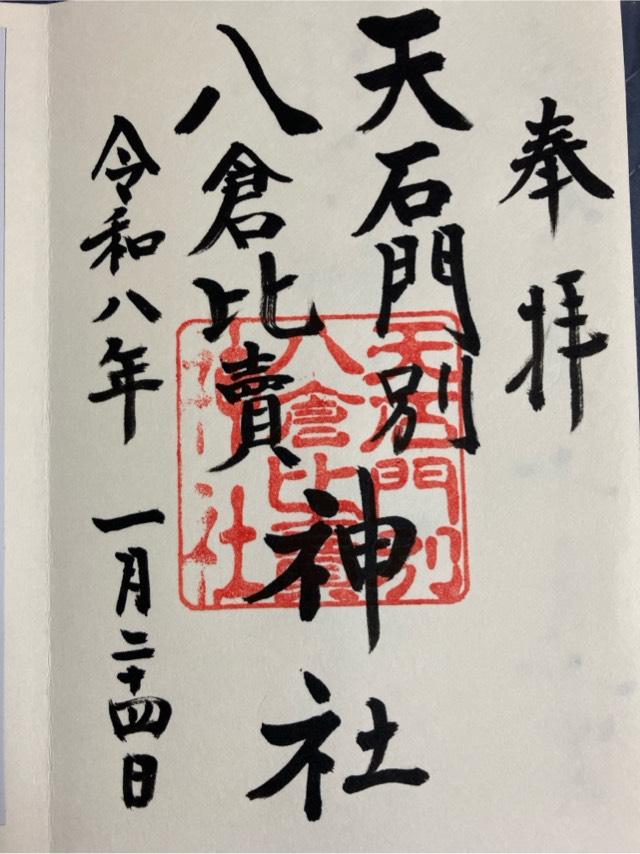 奉拝
天石門別
八倉比賣
神社
令和八年 一月二十四日
天石門別
八倉比賣
神社